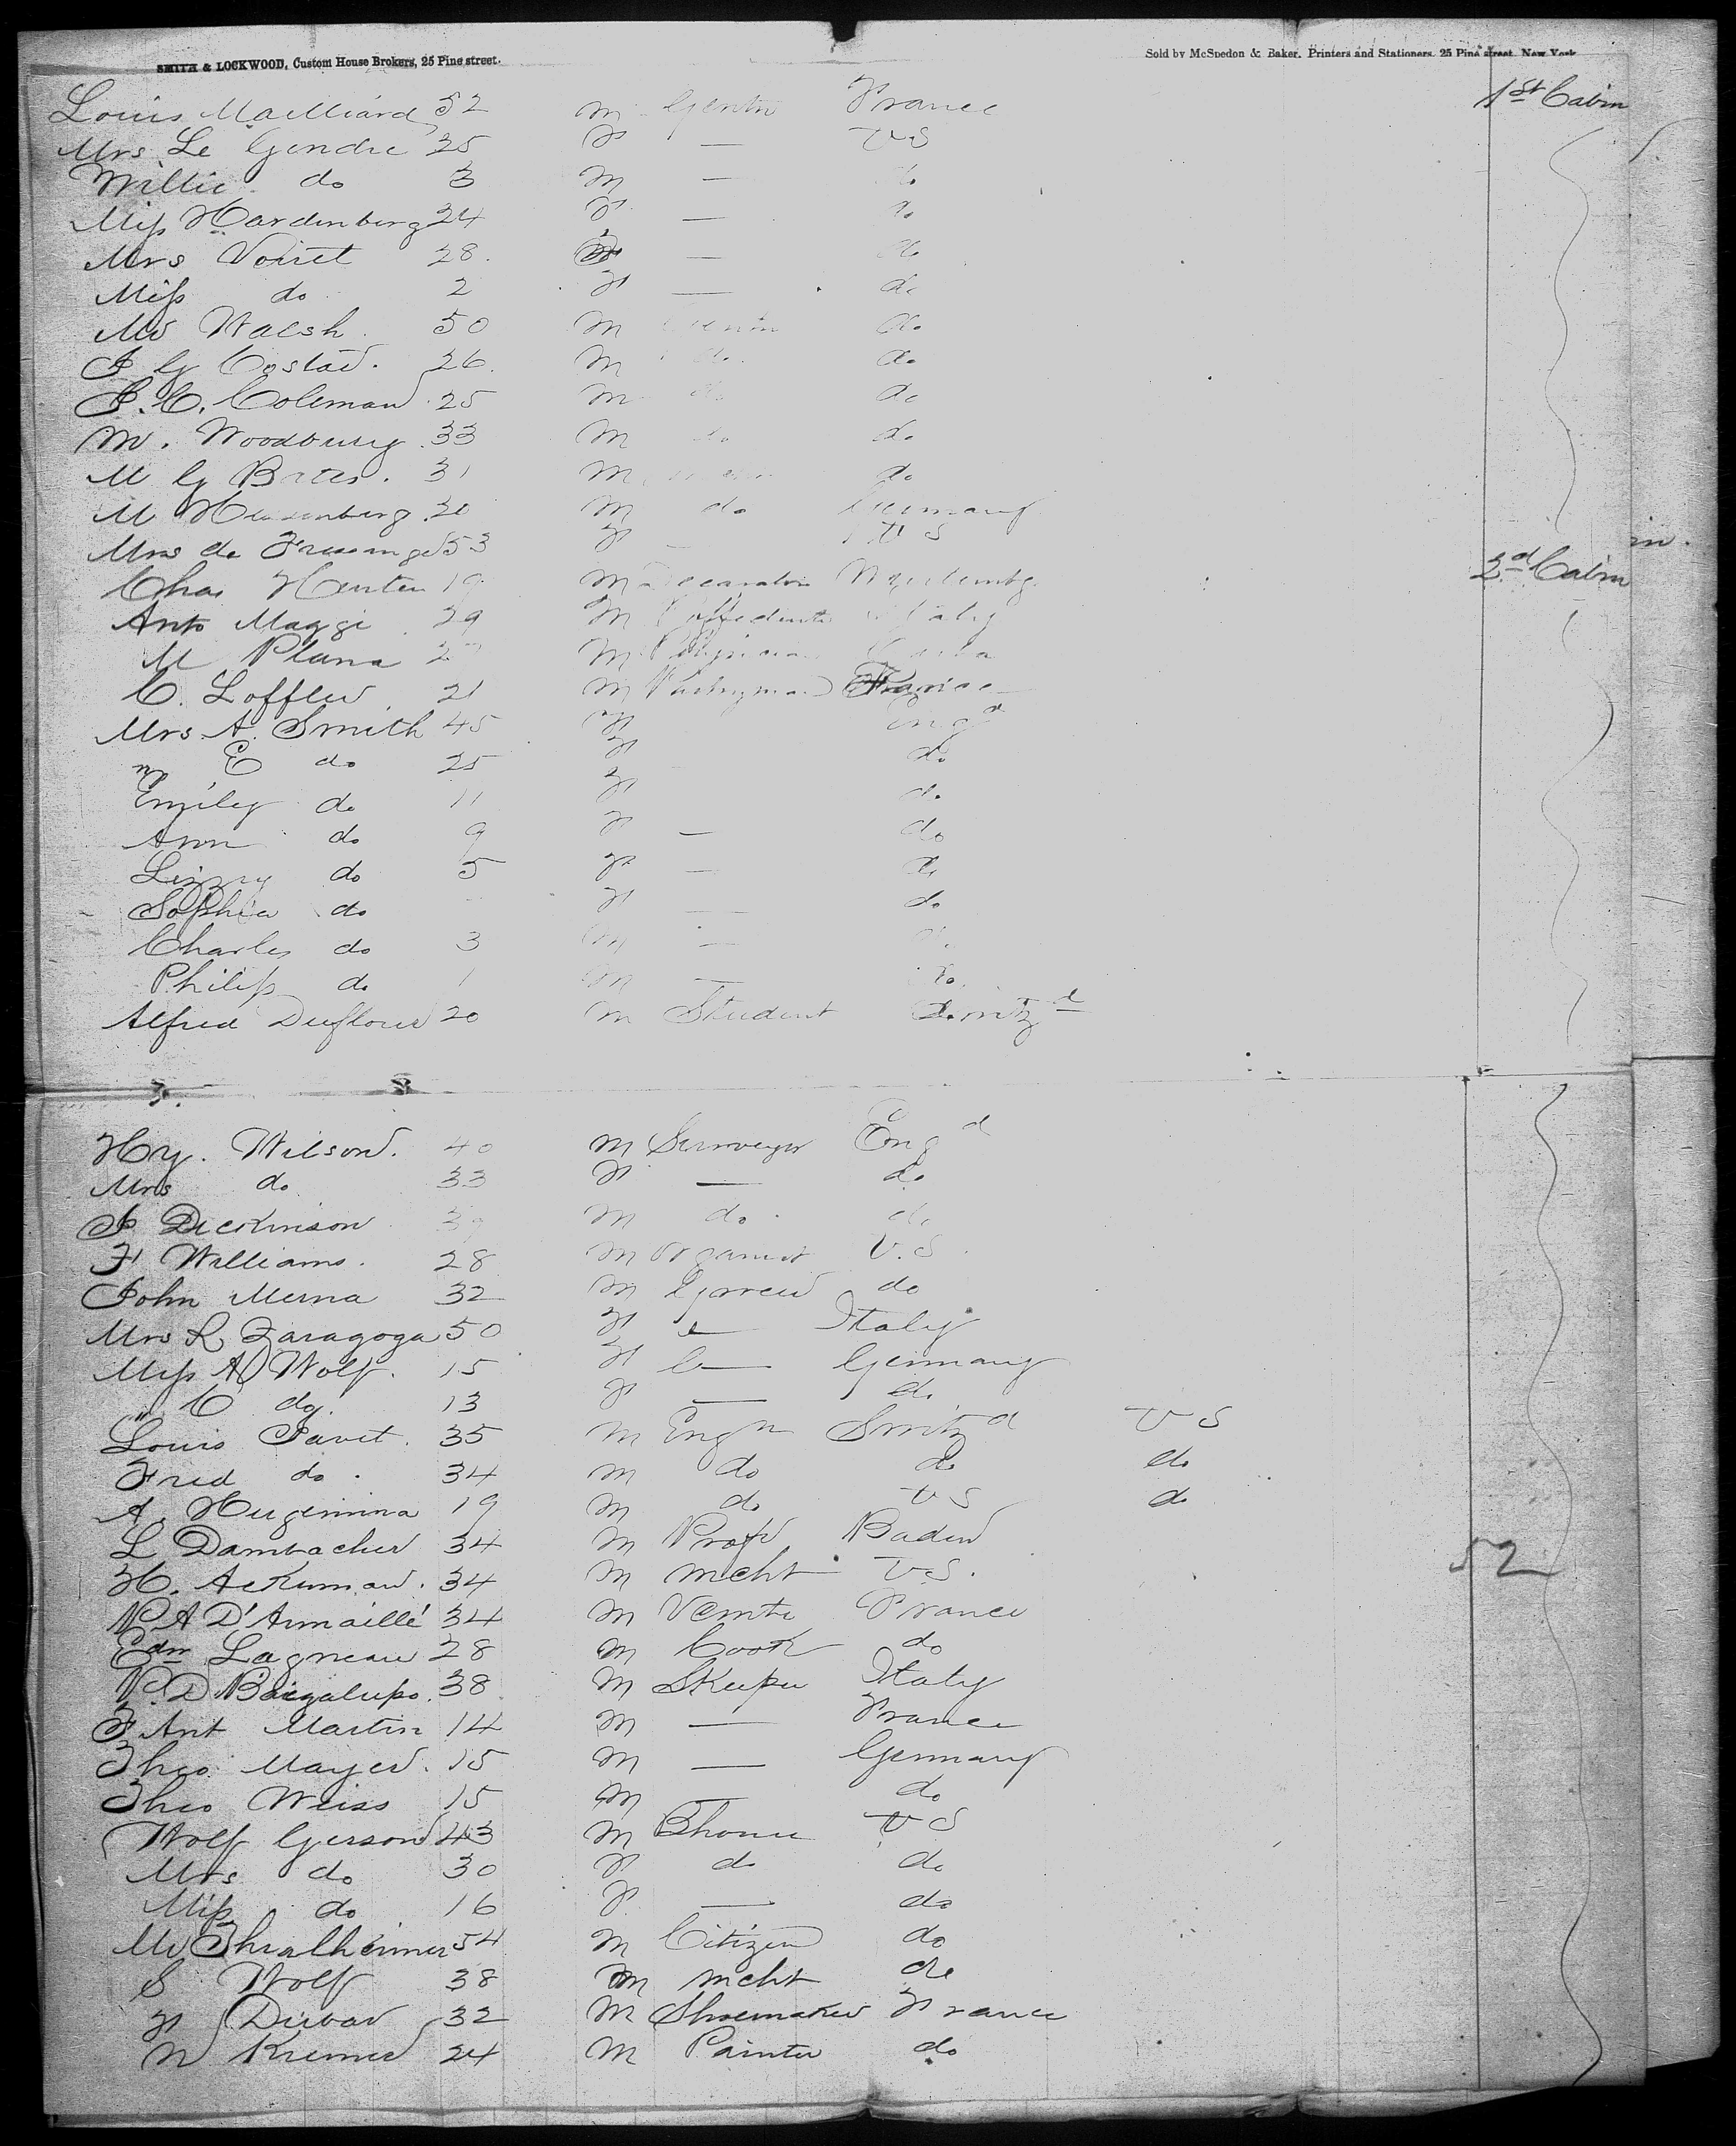 SMITH & LOCKWOOD, Custom House Brokers, 25 Pine street.
Sold by McSpedon & Baker, Printers and Stationers, 25 Pine street, New York
Louis Mailliard 52 M Gentn France 1st Cabin
Mrs Le Gendre 25 F — US
Willie do 3 M — do
Miss Hardenberg 24 F — do
Mrs Voiret 28 F — do
Miss do 2 F — do
Mr Walsh 50 M Gentn do
J G Costar 26 M do do
J. C. Coleman 25 M do do
M. Woodbury 33 M do do
M G Bates 31 M do
M 30 M do Germany
Mrs de 53 F — US
Chas 19 M Wurtembg 2d Cabin
Anto Maggi 29 M Italy
M Plana M Physician Cuba
C. Loffler 21 M France
Mrs A. Smith 45 F Engd
" E do 25 F do
Emily do 11 F do
Ann do 9 F — do
Lizzy do 5 F — do
Sophia do F — do
Charles do 3 M —
Philip do 1 M — do
Alfred Duflour 20 M Student Switzd
Hy. Wilson 40 M Surveyor Engd
Mrs do 33 F — do
J Dickinson 39 M do do
F Williams 28 M Organist U.S
John Merna 32 M do
Mrs R Zaragoga 50 F — Italy
Miss A Wolf 15 F — Germany
" C do 13 F — do
Louis Favet 35 M Engn Switzd US
Fred do 34 M do do do
A. Hugenina 19 M do US do
L Dambacher 34 M Profr Baden
H. Ackerman 34 M Mcht U.S. 52
P. A D'Armaillé 34 M Vcmte France
Edm Lagneau 28 M Cook do
P. D Bacigalupo 38 M SKeeper Italy
F Ant Martin 14 M — France
Theo Mayer 15 M — Germany
Theo Weiss 15 M — do
Wolf Gerson 43 M US
Mrs do 30 F do do
Miss do 16 F — do
Mr Thralheimer 54 M Citizen do
S Wolf 38 M Mcht do
F 32 M Shoemaker France
N Kremer 24 M Painter do